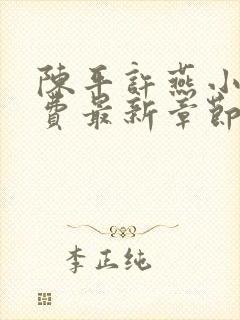 陳平許燕小
費最新章節
李正纯